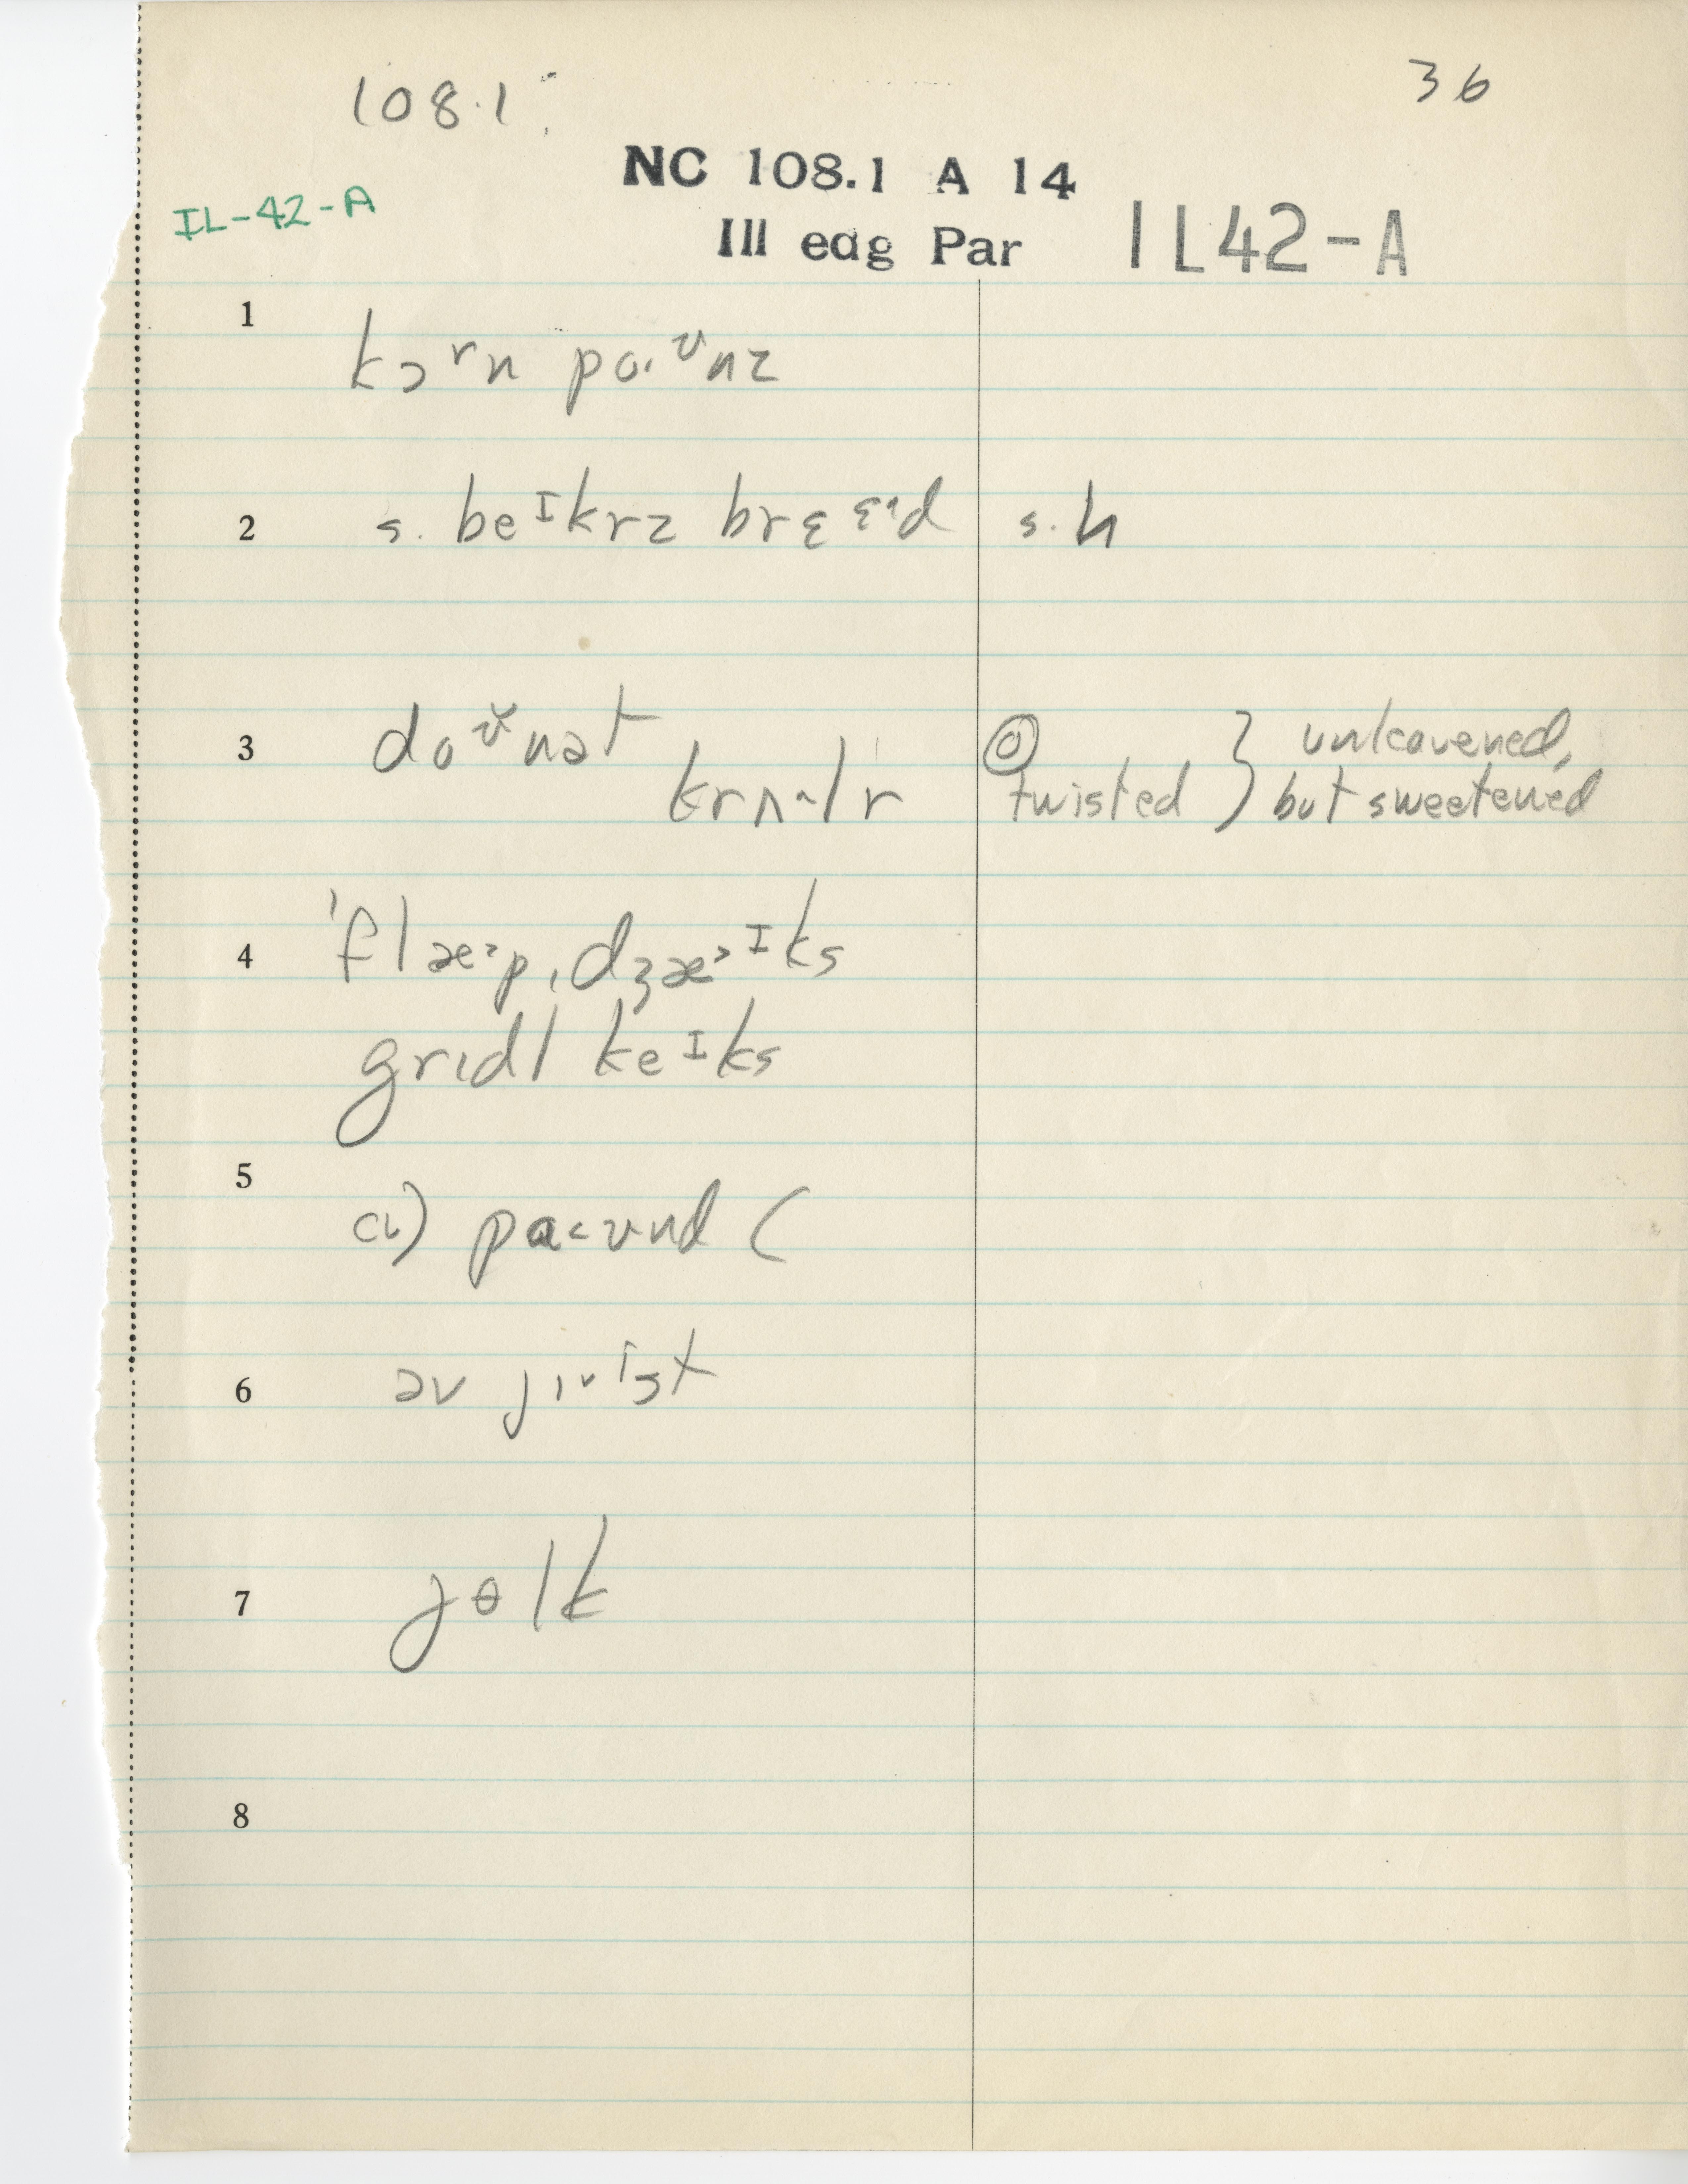 108.1
36
NC 108.1 A 14
IL-42-A
Ill edg Par IL42-A
1 kɔʳn pɑ·ᶷnz
2 s. beᴵkrz brɛᵋ·d s. h
3 doᶷnət
krʌ˄lr twisted } unlcavened, but sweetened
4 ˈflæ˃pˌdʒæ˃ᴵks
grɪdl keᴵks
5 a) pa<ʊnd (
6 əv jɪᵛist
7 jɵlk
8